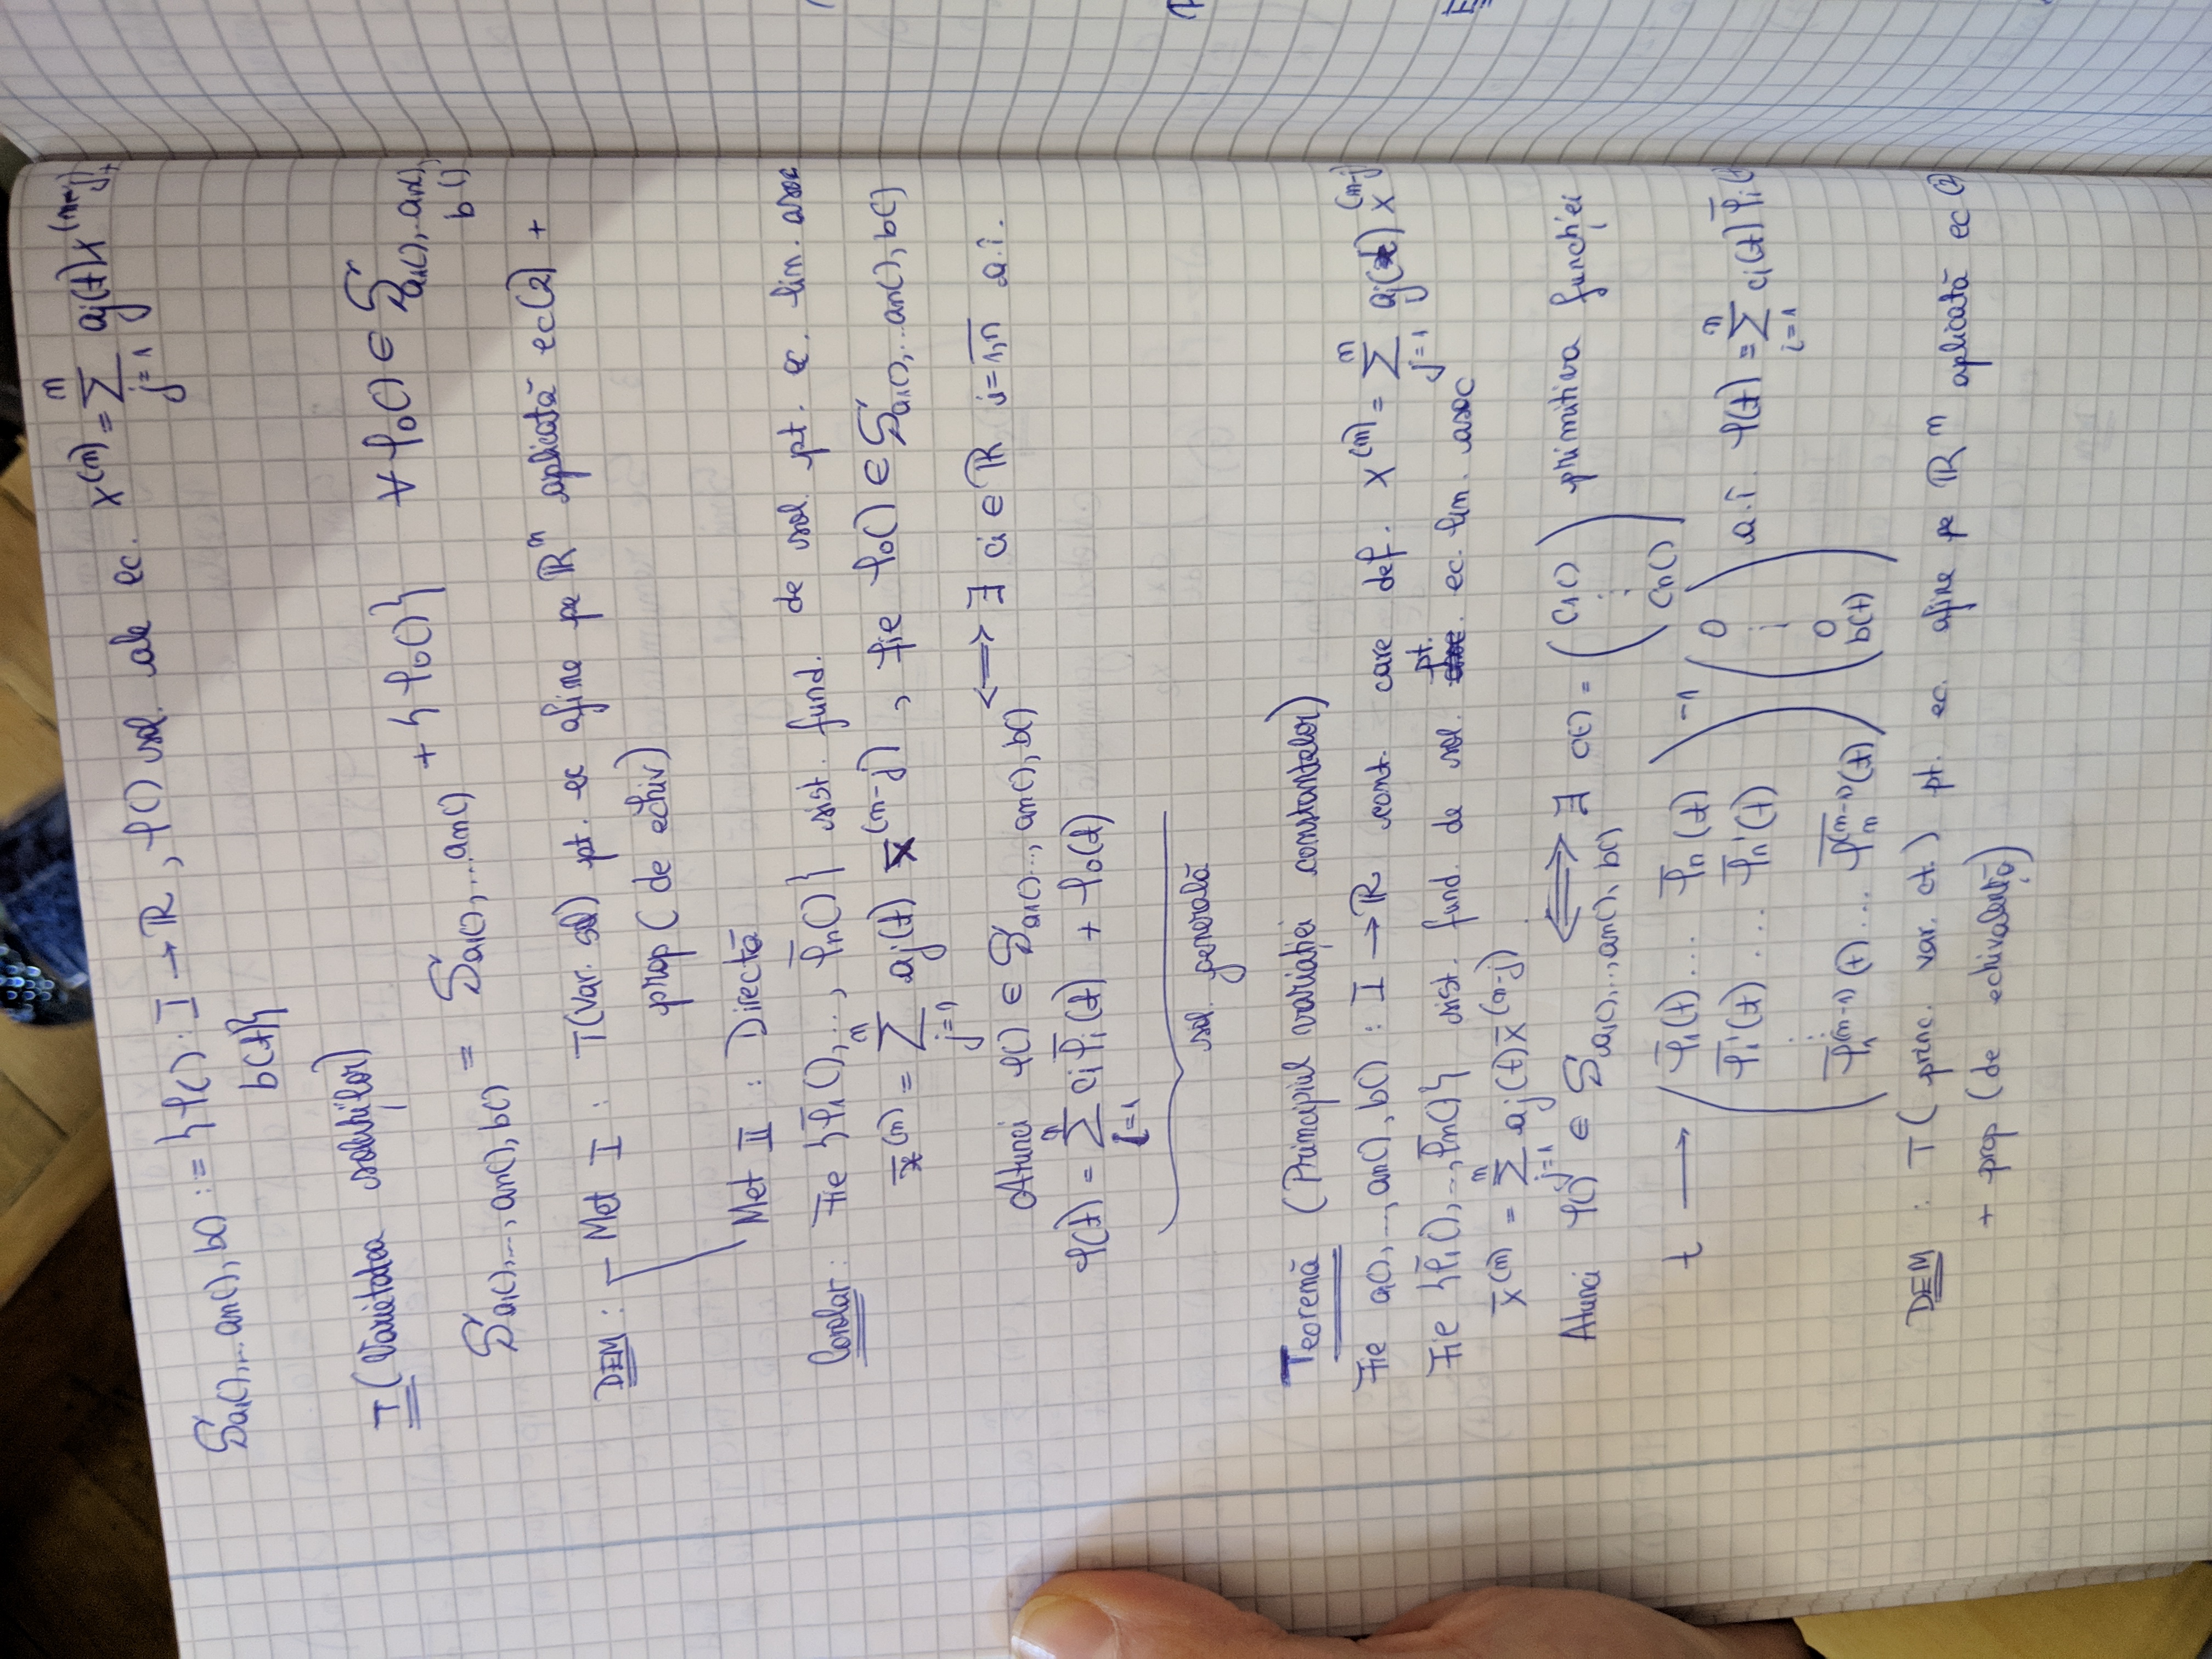 S_{a1(),...an(), b()} := {φ() : I → ℝ, φ() sol. ale ec. x^{(n)} = Σ_{j=1}^{n} aj(t) x^{(n-j)} +
b(t)}
T (Varietatea soluțiilor)
S_{a1(),..., an(), b()} = S_{a1(),...an()} + {φ0()} ∀ φ0() ∈ S_{a1(),...an(), b()}
DEM : Met I : T(var. sol) pt. ec afine pe ℝ^n aplicată ec(2) +
prop ( de echiv)
Met II : Directă
Corolar : Fie {φ̄1(),..., φ̄n()} sist. fund. de sol. pt. ec. lin. asoc
x̄^{(n)} = Σ_{j=1}^{n} aj(t) x̄^{(n-j)}, fie φ0() ∈ S_{a1(),...an(), b()}
Atunci φ() ∈ S_{a1()..., an(), b()} ⟺ ∃ ci ∈ ℝ i=1,n̅ a.î.
φ(t) = Σ_{i=1}^{n} ci φ̄i(t) + φ0(t)
sol. generală
Teoremă (Principiul variației constantelor)
Fie a1(),..., an(), b() : I → ℝ cont. care def. x^{(n)} = Σ_{j=1}^{n} aj(t) x^{(n-j)}
Fie {φ̄1(),..., φ̄n()} sist. fund. de sol. pt. ec. lin. asoc
x̄^{(n)} = Σ_{j=1}^{n} aj(t) x̄^{(n-j)}
Atunci φ() ∈ S_{a1(),..., an(), b()} ⟺ ∃ c() = ( c1() ⋮ cn() ) primitiva funcției
t → ( φ̄1(t) ... φ̄n(t)
φ̄1'(t) .... φ̄n'(t)
⋮
φ̄1^{(n-1)}(t) ... φ̄n^{(n-1)}(t) )^{-1} ( 0 ⋮ 0 b(t) ) a.î. φ(t) = Σ_{i=1}^{n} ci(t) φ̄i(t
DEM : T ( princ. var. ct. ) pt. ec. afine pe ℝ^n aplicată ec (2)
+ prop (de echivalență)